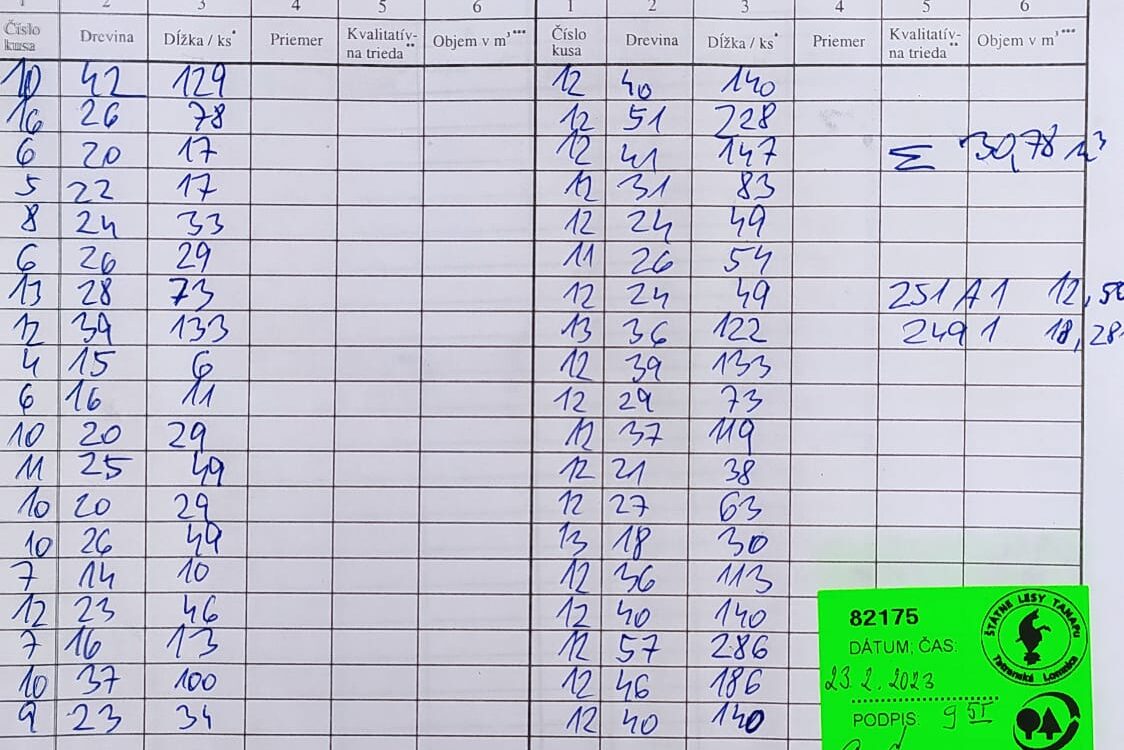 1 2 3 4 5 6 1 2 3 4 5 6
Číslo kusa Drevina Dĺžka / ks* Priemer Kvalitatív-na trieda** Objem v m³*** Číslo kusa Drevina Dĺžka / ks* Priemer Kvalitatív-na trieda** Objem v m³***
10 42 129 12 40 140
16 26 78 12 51 228
6 20 17 12 41 147 Σ 30,78 m³
5 22 17 12 31 83
8 24 33 12 24 49
6 26 29 11 26 54
13 28 73 12 24 49 251 A1 12,50
12 39 133 13 36 122 249 1 18,28
4 15 6 12 39 133
6 16 11 12 29 73
10 20 29 12 37 119
11 25 49 12 21 38
10 20 29 12 27 63
10 26 49 13 18 30
7 14 10 12 36 113
12 23 46 12 40 140
7 16 13 12 57 286
10 37 100 12 46 186
9 23 34 12 40 140
82175
DÁTUM, ČAS:
23.2.2023
PODPIS
ŠTÁTNE LESY TANAPU
Tatranská Lomnica